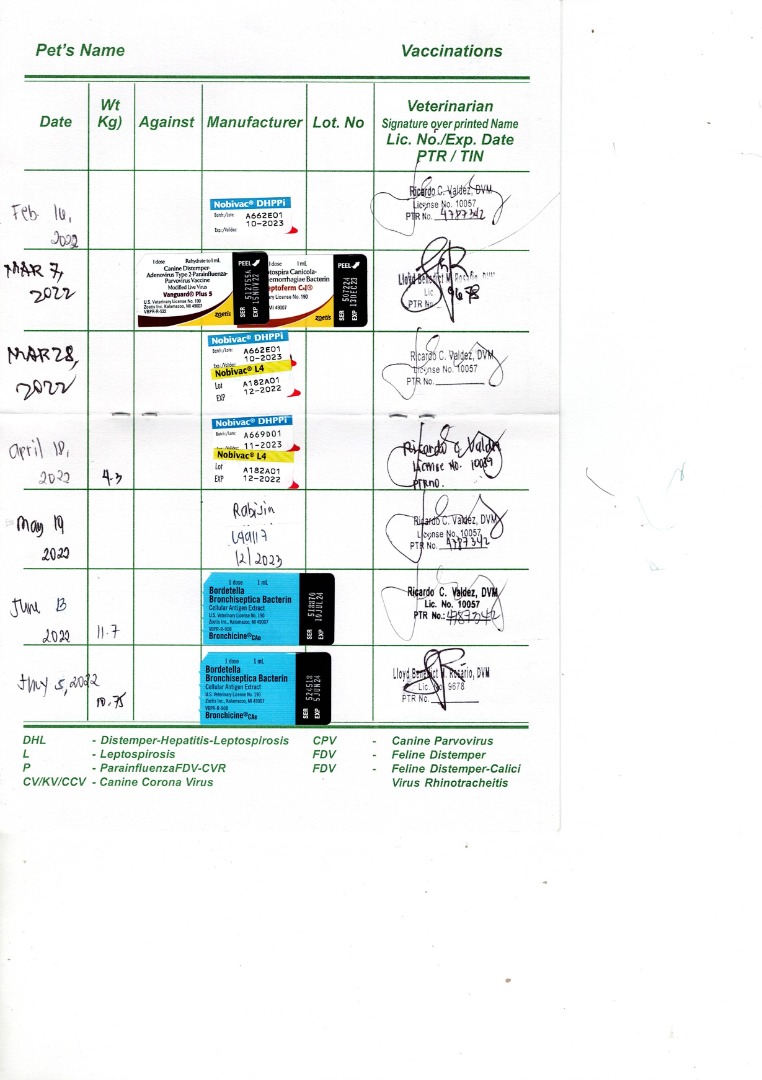 Pet's Name Vaccinations
Date Wt Kg) Against Manufacturer Lot. No Veterinarian
Signature over printed Name
Lic. No./Exp. Date
PTR / TIN
Feb. 16,
2022
Nobivac® DHPPi
Batch/Lote: A662E01
Exp./Validez: 10-2023
Ricardo C. Valdez, DVM
License No. 10057
PTR No. 4787342
MAR 7,
2022
1 dose Rehydrate to 1 mL
Canine Distemper-
Adenovirus Type 2-Parainfluenza-
Parvovirus Vaccine
Modified Live Virus
Vanguard® Plus 5
U.S. Veterinary License No. 190
Zoetis Inc. Kalamazoo, MI 49007
VBPR-R-533
zoetis
PEEL
SER 512755A
EXP 15NOV22
dose 1 mL
ptospira Canicola-
emorrhagiae Bacterin
eptoferm C-I®
ry License No. 190
MI 49007
zoetis
PEEL
SER 507224
EXP 13DEC23
Lloyd Benedict M. Rosario, DVM
Lic. 9678
PTR No.
MAR 28,
2022
Nobivac® DHPPi
Batch/Lote: A662E01
Exp./Validez: 10-2023
Nobivac® L4
Lot A182A01
EXP 12-2022
Ricardo C. Valdez, DVM
License No. 10057
PTR No.
April 18,
2022
4.3
Nobivac® DHPPi
Batch/Lote: A669D01
11-2023
Nobivac® L4
Lot A182A01
EXP 12-2022
Ricardo C Valdez
License No.
PTR NO.
May 19
2022
Rabisin
12/2023
Ricardo C. Valdez, DVM
License No. 10057
PTR No. 4787342
June 13
2022
11.7
1 dose 1 mL
Bordetella
Bronchiseptica Bacterin
Cellular Antigen Extract
U.S. Veterinary License No. 190
Zoetis Inc., Kalamazoo, MI 49007
VBPR-R-908
Bronchicine®CAe
SER 518876
EXP 10JUL24
Ricardo C. Valdez, DVM
Lic. No. 10057
PTR No.: 4787342
July 5, 2022
10.75
1 dose 1 mL
Bordetella
Bronchiseptica Bacterin
Cellular Antigen Extract
U.S. Veterinary License No. 190
Zoetis Inc., Kalamazoo, MI 49007
VBPR-R-908
Bronchicine®CAe
SER 524518
EXP 5JUN24
Lloyd Benedict M. Rosario, DVM
Lic. No 9678
PTR No.
DHL - Distemper-Hepatitis-Leptospirosis CPV - Canine Parvovirus
L - Leptospirosis FDV - Feline Distemper
P - ParainfluenzaFDV-CVR FDV - Feline Distemper-Calici
CV/KV/CCV - Canine Corona Virus Virus Rhinotracheitis